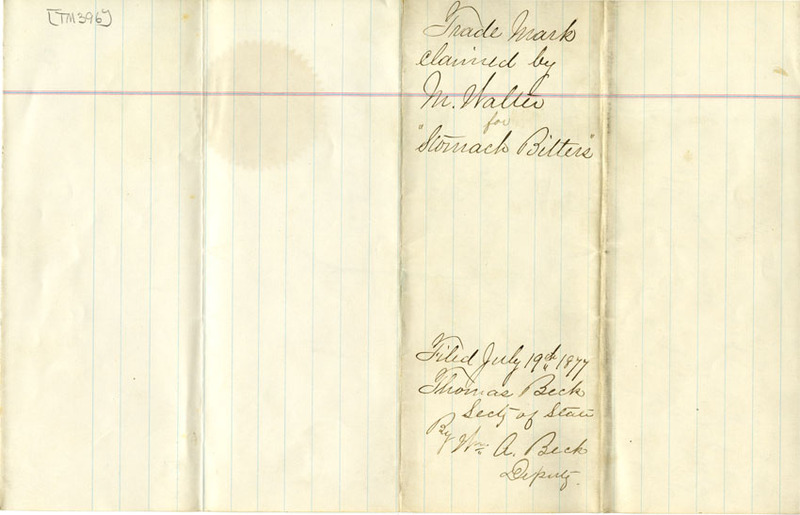 [TM396]
Trade Mark
claimed by
M. Walter
for
"Stomach Bitters"
Filed July 19th 1877
Thomas Beck
Secty of State
By Wm A. Beck
Deputy.